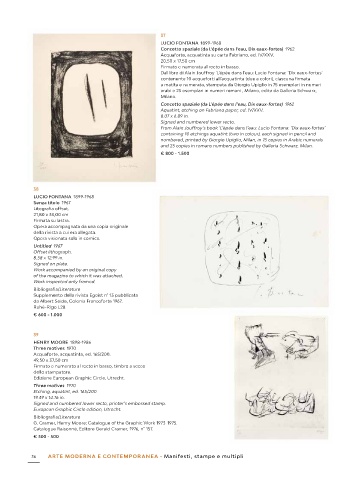 37
LUCIO FONTANA 1899-1968
Concetto spaziale (da L'épée dans l'eau, Dix eaux-fortes) 1962
Acquaforte, acquatinta su carta Fabriano, es. IV/XXV.
20,50 x 17,50 cm
Firmato e numerato al recto in basso.
Dal libro di Alain Jouffroy 'L'épée dans l'eau: Lucio Fontana: Dix eaux-fortes'
contenente 10 acqueforti all'acquatinta (due a colori), ciascuna firmata
a matita e numerata, stampata da Giorgio Upiglio in 75 esemplari in numeri
arabi e 25 esemplari in numeri romani, Milano, edito da Galleria Schwarz,
Milano.
Concetto spaziale (da L'épée dans l'eau, Dix eaux-fortes) 1962
Aquatint, etching on Fabriano paper, ed. IV/XXV.
8.07 x 6.89 in
Signed and numbered lower recto.
From Alain Jouffroy's book 'L'épée dans l'eau: Lucio Fontana: Dix eaux-fortes'
containing 10 etchings aquatint (two in colour), each signed in pencil and
numbered, printed by Giorgio Upiglio, Milan, in 75 copies in Arabic numerals
and 25 copies in romans numbers published by Galleria Schwarz, Milan.
€ 800 - 1.500
38
LUCIO FONTANA 1899-1968
Senza titolo 1967
Litografia offset.
Firmata su lastra.
Opera accompagnata da una copia originale
della rivista a cui era allegata.
Opera visionata solo in cornice.
Untitled 1967
Offset lithograph.
Signed on plate.
Work accompanied by an original copy
of the magazine to which it was attached.
Work inspected only framed
Bibliografia/Literature
Supplemento della rivista Egoist n° 13 pubblicato
da Albert Seide, Colonia Francoforte 1967.
Ruhé-Rigo L28
€ 600 - 1.000
39
HENRY MOORE 1898-1986
Three motives 1970
Acquaforte, acquatinta, es. 165/200.
49,50 x 37,50 cm
Firmato e numerato al recto in basso, timbro a secco
dello stampatore.
Edizione European Graphic Circle, Utrecht.
Three motives 1970
Etching, aquatint, ed. 165/200
19.49 x 14.76 in.
Signed and numbered lower recto, printer's embossed stamp.
European Graphic Circle edition, Utrecht.
Bibliografia/Literature
G. Cramer, Henry Moore: Catalogue of the Graphic Work 1973-1975,
Catalogue Raisonné, Editore Gerald Cramer, 1976, n° 157.
€ 300 - 500
36 ARTE MODERNA E CONTEMPORANEA - Manifesti, stampe e multipli